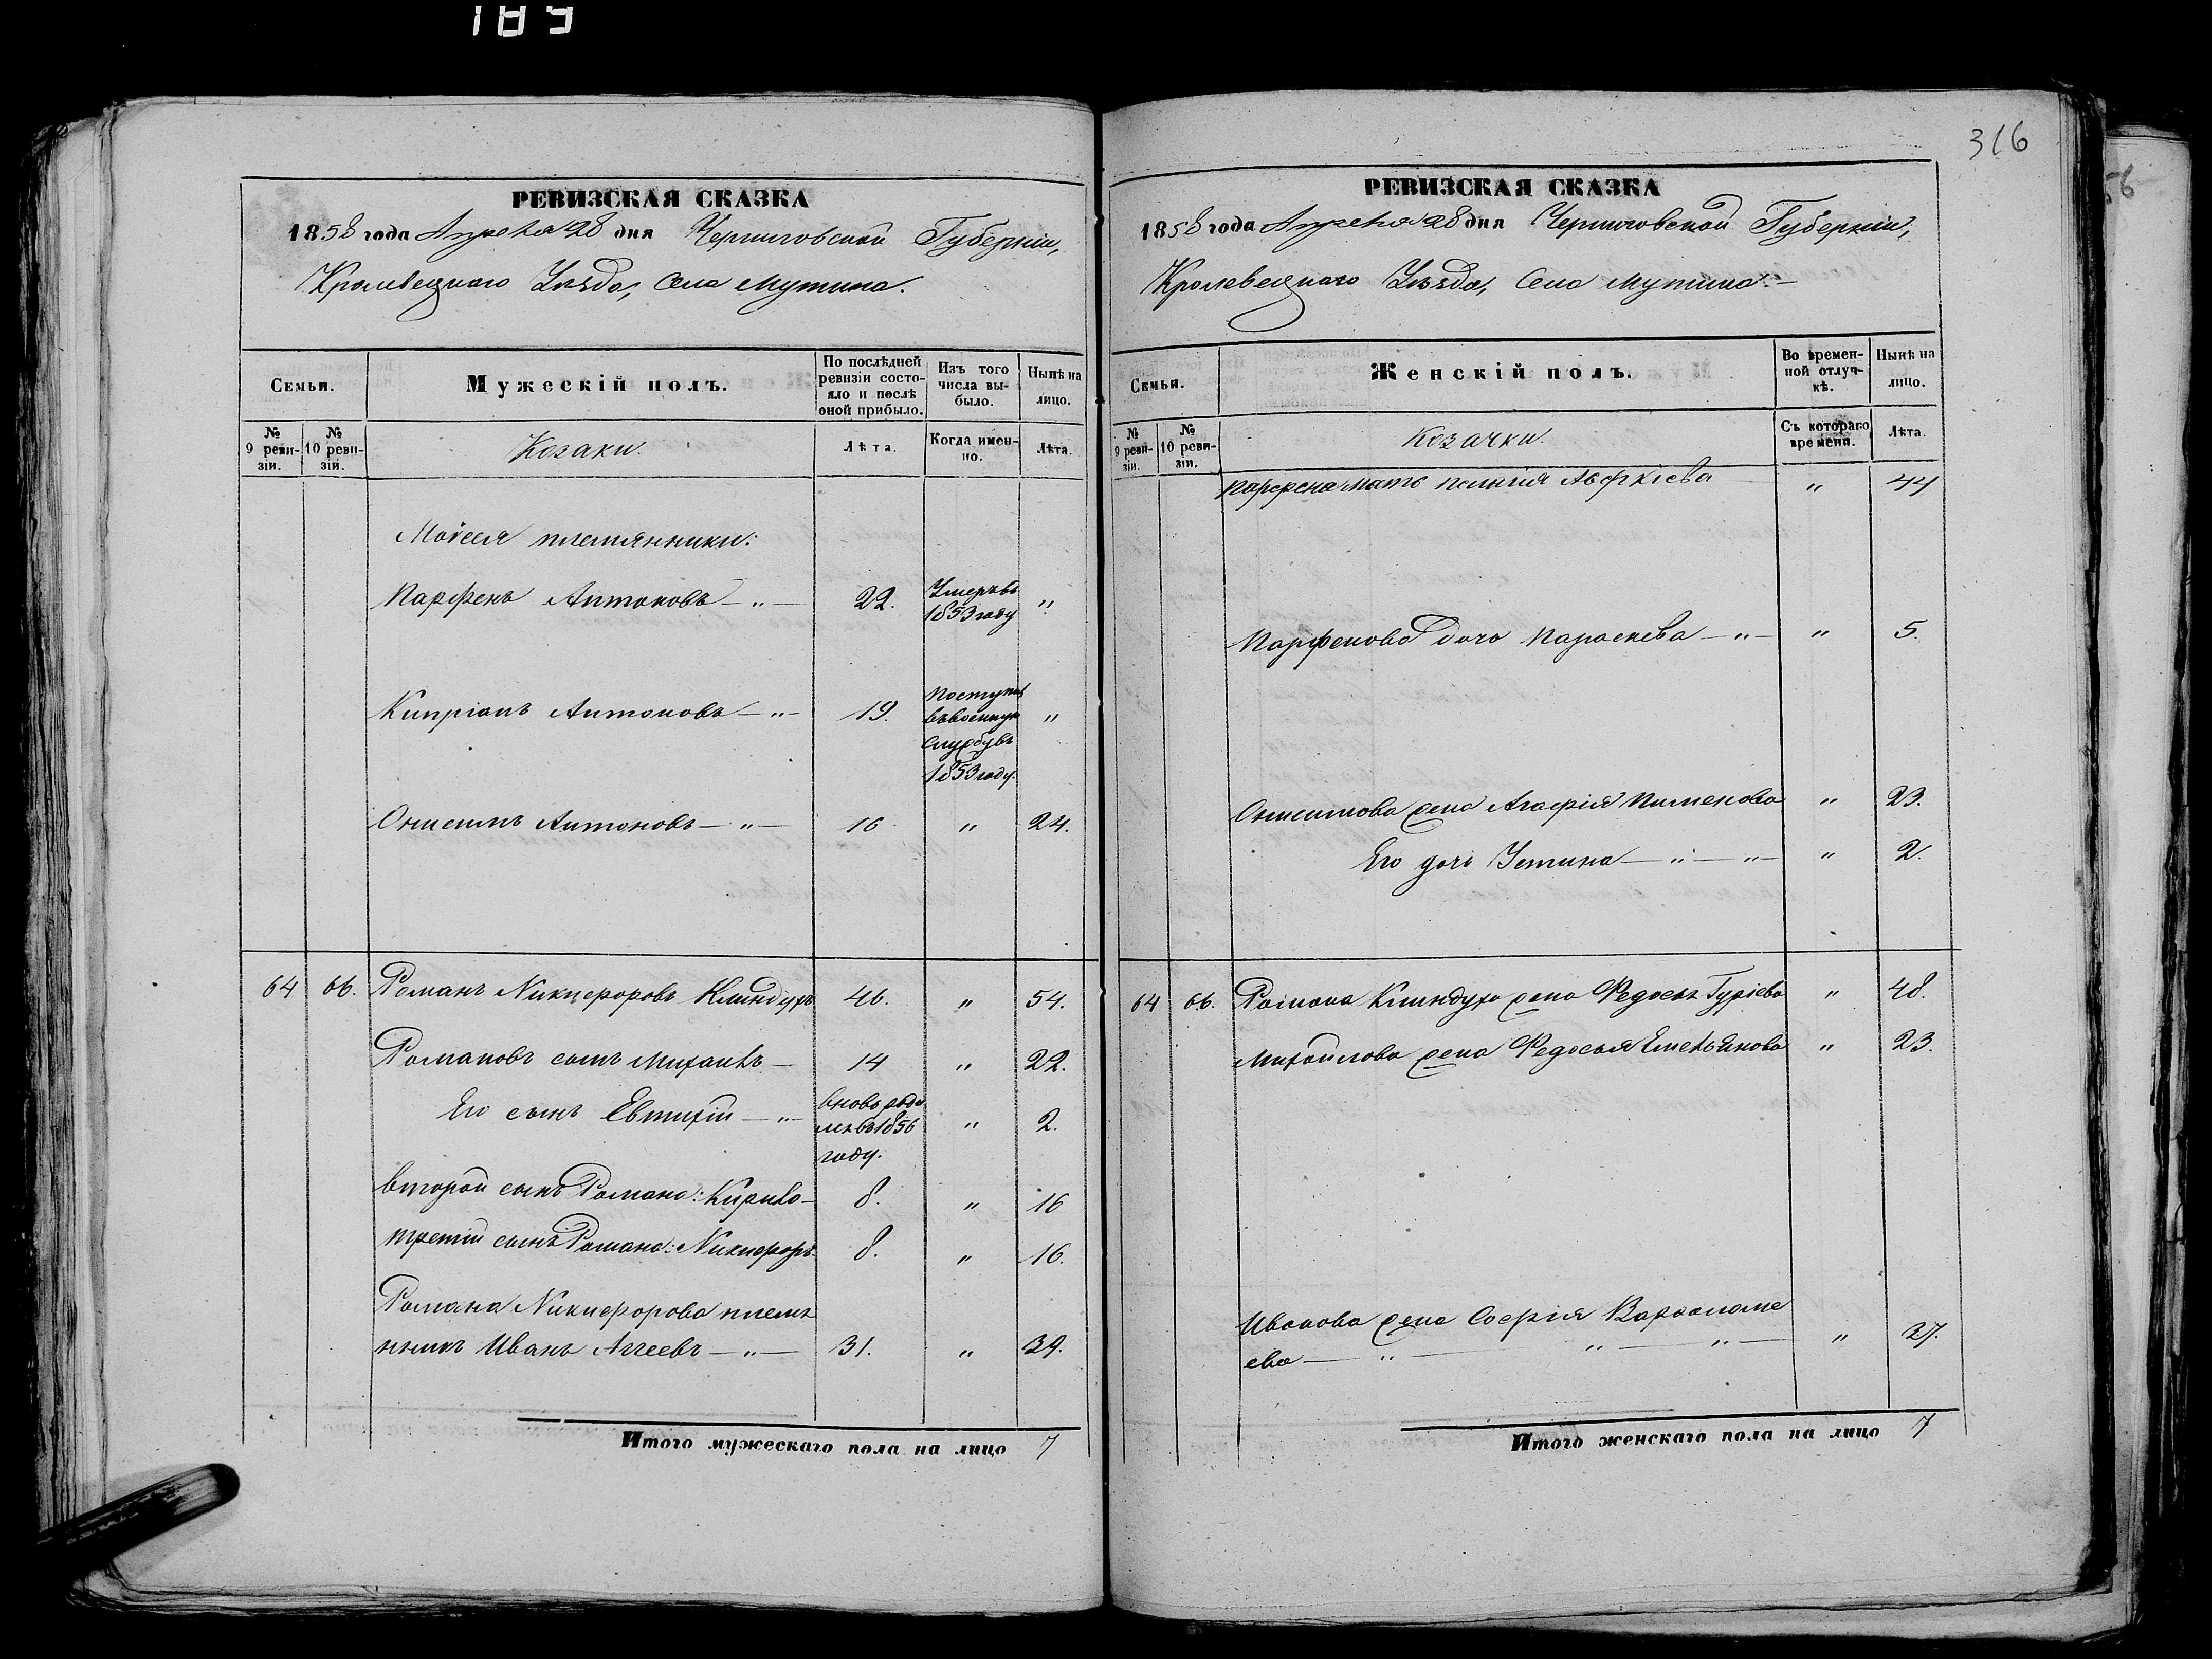 189
316
56
РЕВИЗСКАЯ СКАЗКА
1858 года Апреля 28 дня Черниговской Губерніи,
Кролевецкаго Уѣзда, Села Мутина.
Семьи.
Мужескій полъ.
По послѣдней ревизіи состояло и послѣ оной прибыло.
Изъ того числа выбыло.
Нынѣ на лицо.
№ 9 ревизіи.
№ 10 ревизіи.
Козаки.
Лѣта.
Когда именно.
Лѣта.
Моѵсея племянники:
Парфенъ Антоновъ — " — 22. Умеръ въ 1853 году "
Кипріанъ Антоновъ — " — 19. Поступил въ военную службу въ 1853 году. "
Онисимъ Антоновъ — " — 16 " 24.
64 66. Романъ Никифоровъ Клиндухъ 46. " 54.
Романовъ сынъ Михаилъ — 14 " 22.
Его сынъ Евтихій — " — вновь родился въ 1856 году. " 2.
второй сынъ Романа: Кирило — 8. " 16
третій сынъ Романа: Никифоръ 8. " 16.
Романа Никифорова племя
нникъ Иванъ Аггеевъ — " — 31. " 39.
Итого мужескаго пола на лицо 7
РЕВИЗСКАЯ СКАЗКА
1858 года Апреля 28 дня Черниговской Губерніи,
Кролевецкаго Уѣзда, Села Мутина. —
Семьи.
Женскій полъ.
Во временной отлучкѣ.
Нынѣ на лицо.
№ 9 ревизіи.
№ 10 ревизіи.
Козачки.
Съ котораго времени.
Лѣта.
Парфена мать Пелагія Авфкіева " 44
Парфенова дочь Параскева — " — " 5.
Онисимова жена Агафія Пименова " 23.
Его дочь Устина — " — " — " 2.
64 66. Романа Клиндуха жена Федосья Гуріева " 48.
Михайлова жена Федосья Емельянова " 23.
Иванова жена Софія Варфоломе
ева — " — " — " — " 27.
Итого женскаго пола на лицо 7